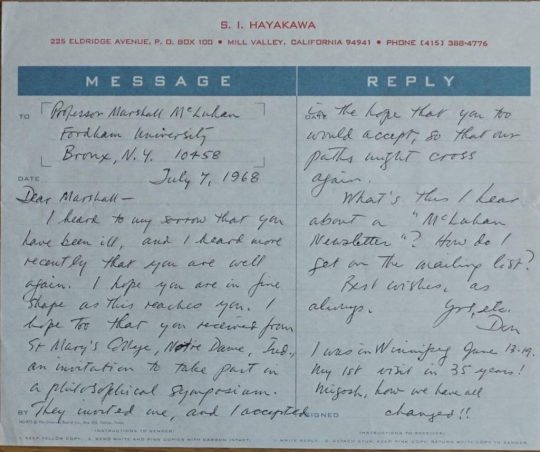 S. I. HAYAKAWA
225 ELDRIDGE AVENUE, P. O. BOX 100 • MILL VALLEY, CALIFORNIA 94941 • PHONE (415) 388-4776
MESSAGE
TO
Professor Marshall McLuhan
Fordham University
Bronx, N.Y. 10458
DATE
July 7, 1968
Dear Marshall—
I heard to my sorrow that you
have been ill, and I heard more
recently that you are well
again. I hope you are in fine
shape as this reaches you. I
hope too that you received from
St Mary's College, Notre Dame, Ind.,
an invitation to take part in
a philosophical symposium.
BY They invited me, and I accepted
INSTRUCTIONS TO SENDER:
1. KEEP YELLOW COPY. 2. SEND WHITE AND PINK COPIES WITH CARBON INTACT.
REPLY
DATE
in the hope that you too
would accept, so that our
paths might cross
again.
What's this I hear
about a "McLuhan
Newsletter"? How do I
get on the mailing list?
Best wishes, as
always. Yrs, etc.
Don
I was in Winnipeg June 13-19.
My 1st visit in 35 years!
Migosh, how we have all
SIGNED changed!!
INSTRUCTIONS TO RECEIVER:
1. WRITE REPLY. 2. DETACH STUB, KEEP PINK COPY, RETURN WHITE COPY TO SENDER.